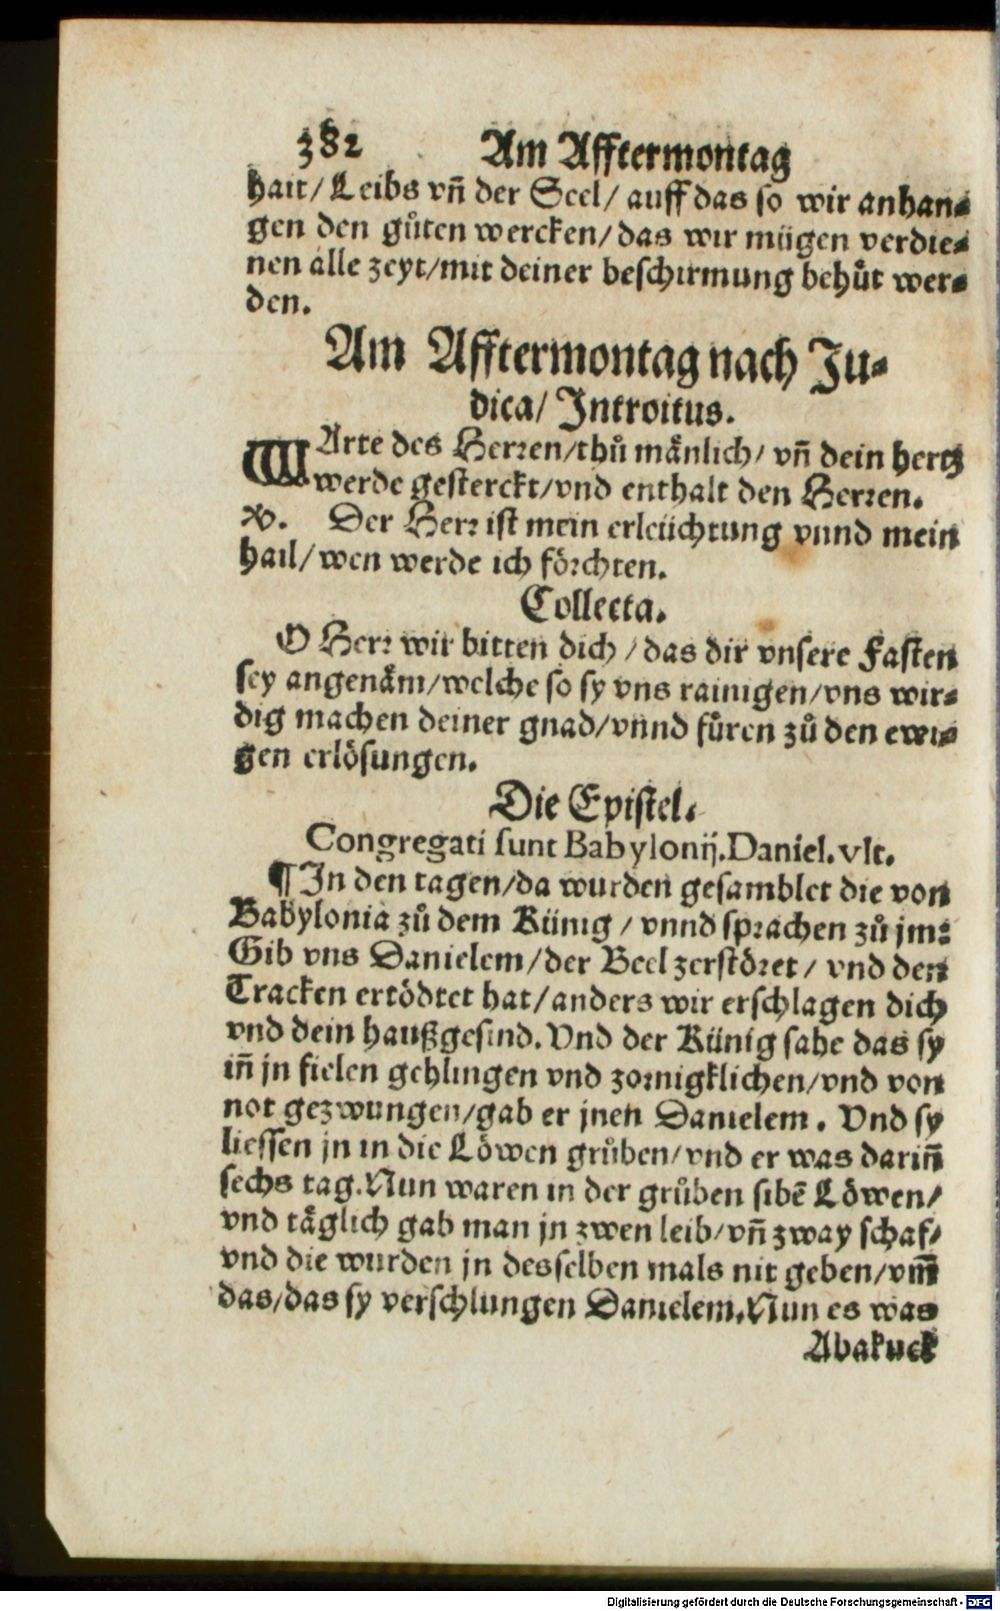 382 Am Afftermontag
hait/ Leibs vñ der Seel/ auff das so wir anhan⸗
gen den gůten wercken/ das wir mügen verdie⸗
nen alle zeyt/mit deiner beschirmung behůt wer⸗
den.
Am Afftermontag nach Ju⸗
dica/ Introitus.
WArte des Herren/thů mãnlich/ vñ dein hertz
werde gesterckt/vnd enthalt den Herren.
V. Der Herr ist mein erleüchtung vnnd mein
hail/ wen werde ich förchten.
Collecta.
O Herr wir bitten dich / das dir vnsere Fasten
sey angenäm/welche so sy vns rainigen/vns wir⸗
dig machen deiner gnad/vnnd fůren zů den ewi⸗
gen erlösungen.
Die Epistel.
Congregati sunt Babylonij. Daniel. vlt.
¶ In den tagen/da wurden gesamblet die von
Babylonia zů dem Künig / vnnd sprachen zů jm:
Gib vns Danielem/der Beel zerstöret/ vnd den
Tracken ertödtet hat/anders wir erschlagen dich
vnd dein haußgesind. Vnd der Künig sahe das sy
iñ jn fielen gehlingen vnd zornigklichen/vnd von
not gezwungen/gab er jnen Danielem. Vnd sy
liessen jn in die Löwen grůben/vnd er was dariñ
sechs tag. Nun waren in der grůben sibē Löwen/
vnd täglich gab man jn zwen leib/vñ zway schaf/
vnd die wurden jn desselben mals nit geben/vm̃
das/das sy verschlungen Danielem. Nun es was
Abakuck
Digitalisierung gefördert durch die Deutsche Forschungsgemeinschaft - DFG